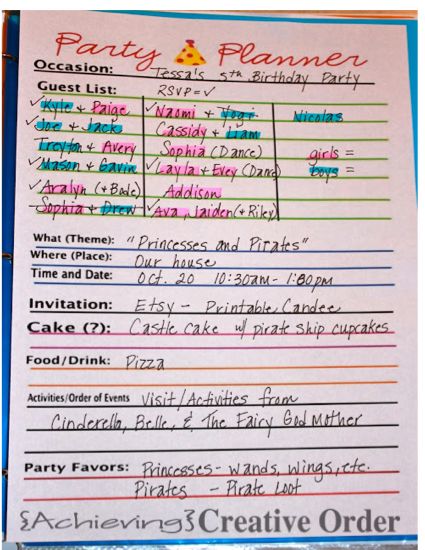 Party Planner
Occasion: Tessa's 5th Birthday Party
Guest List: RSVP = ✓
✓ Kyle + Paige ✓ Naomi + Yogi Nicolas
✓ Joe + Jack Cassidy + Liam
Treyton + Avery Sophia (Dance) girls =
✓ Mason + Gavin ✓ Layla + Evey (Dance) boys =
✓ Aralyn (+ Bode) Addison
Sophia + Drew ✓ Ava, Jaiden (+ Riley)
What (Theme): "Princesses and Pirates"
Where (Place): Our house
Time and Date: Oct. 20 10:30am - 1:00pm
Invitation: Etsy - Printable Candee
Cake (?): Castle cake w/ pirate ship cupcakes
Food/Drink: Pizza
Activities/Order of Events Visit/Activities from
Cinderella, Belle, & The Fairy God Mother
Party Favors: Princesses - wands, wings, etc.
Pirates - Pirate Loot
{Achieving} Creative Order